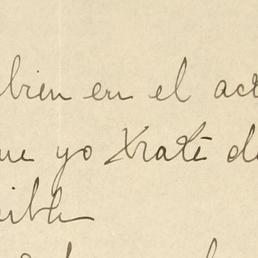 bien en el ac
ue yo traté d
ible